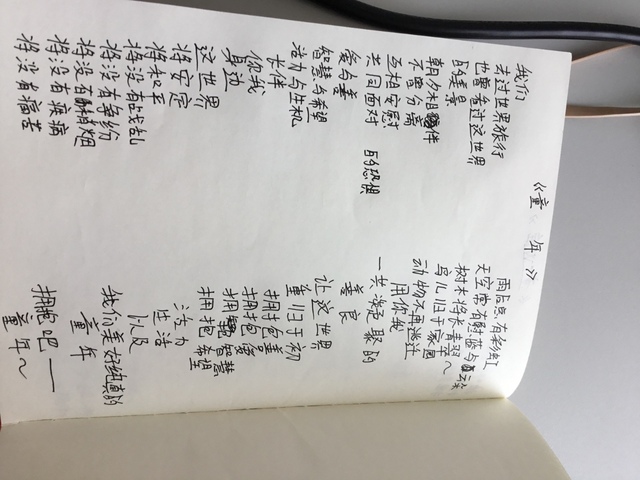 《童年》
我们
去过世界旅行
也曾看过这世界
的美景
朝夕相伴
不曾分离
互相安慰
共同面对
的恐惧
爱与善
智慧与希望
活力与生机
长伴
你我
身边
这世界
将安定
将和平
将没有战乱
将没有争纷
将没有硝烟
将没有疾病
将没有痛苦
雨后总有彩虹
天空常有蔚蓝与云朵
树木将长青翠~
鸟儿归于家园
动物不再逃亡
用你我
一共凝聚的
善良
让这世界
重归于初
拥抱善
拥抱爱
拥抱智慧
拥抱希望
活力
生活
以及
我们美好纯真的
童年
拥抱吧——
童年~